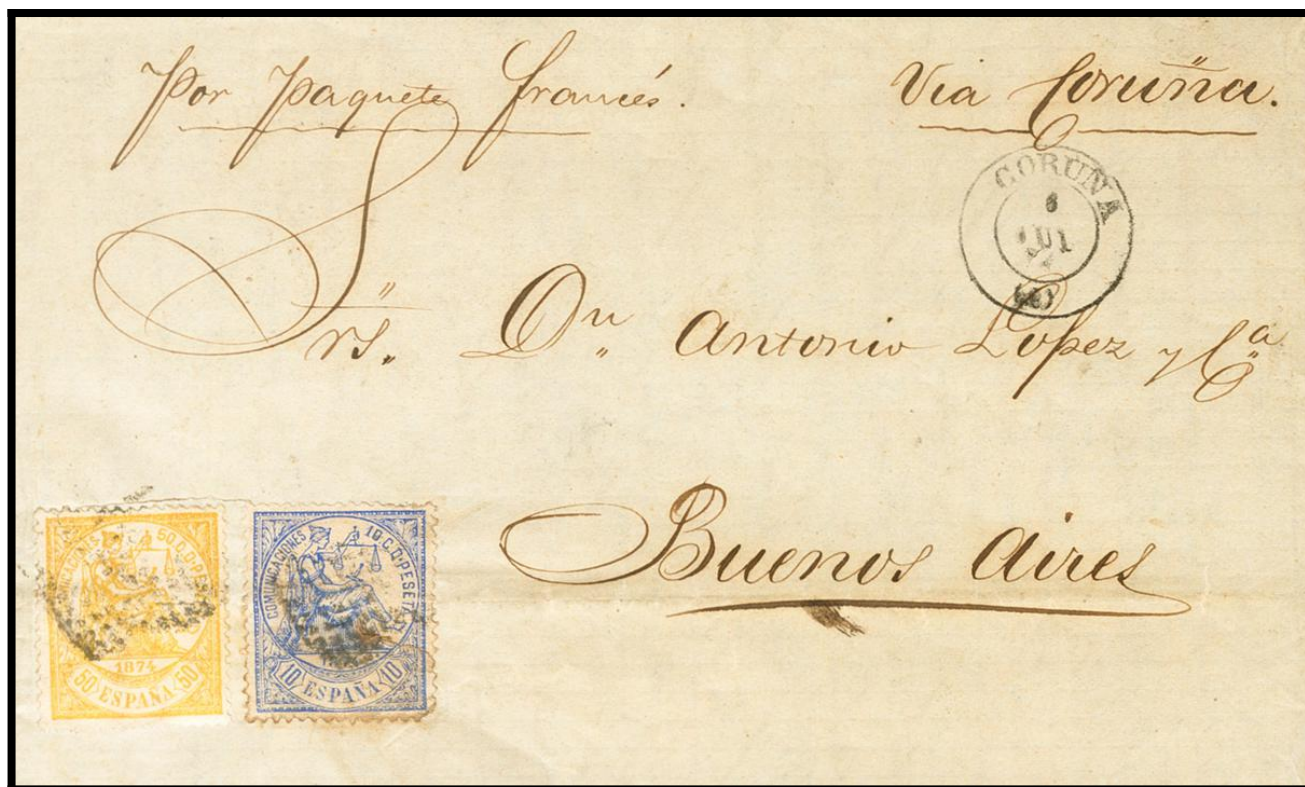 Por Paquete francés. Via Coruña.
CORUÑA
6
Srs. Dn Antonio Lopez y Cª
Buenos Aires
COMUNICACIONES 50 C. D. PESETA
1874
50 ESPAÑA 50
COMUNICACIONES 10 C. D. PESETA
10 ESPAÑA 10